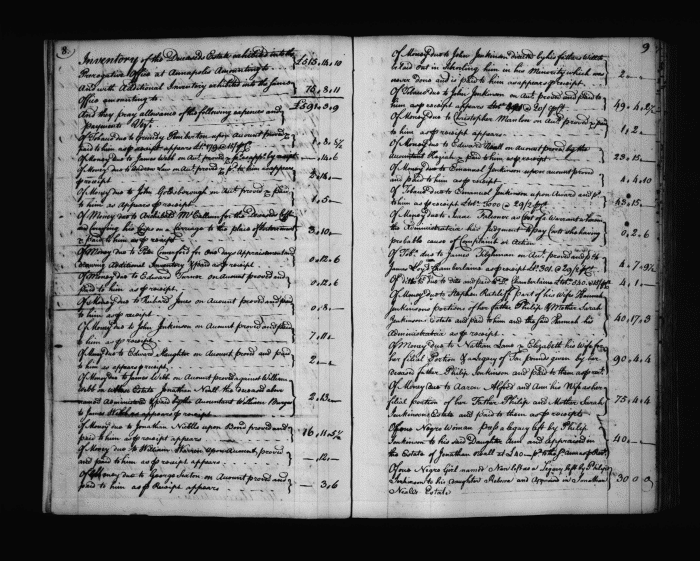 8.
Inventory of the Deceaseds Estate exhibited into the
Prerogative Office at Annapolis Amounting to £515,14,10
And with Additional Inventory exhibited into the same
Office amounting to 75,8,11
And they pray allowance of the following expences and £591,3,9
Payments Viz.
Of Tobacco due to Grundy Pemberton upon Account proved &
paid to him as receipt appears
Of Money due to James Webb on Acct. proved & receipt ,14,6
Of Money due to Andrew on Acct. proved & pd. to him as appears
receipt
Of Money due to John Goldsborough on Acct. proved & paid
to him as Appears receipt 1,5,
Of Money due to Archibald McCallum for the Deceaseds Coffin
and Carriage to the place of Interrment
& paid to him as receipt 3,10,
Of Money due to Peter for one days Appraisement and
drawing Additional Inventory & paid as receipt 0,12,6
Of Money due to Edward Turner on Account proved and
paid to him as receipt 0,12,6
Of Money due to Richard Jones on Account proved and paid
to him as receipt 0,8,
Of Money due to John Jenkinson on Account proved and paid
to him as receipt 7,11,
Of Money due to Edward Slaughter on Account proved and paid
to him as appears receipt 2,
Of Money due to James Webb on Account proved against William
Webb Estate Jonathan Neall the deceased above
named Administered & paid by the Accountant William
to James Webb as appears receipt 2,13,
Of Money due to Jonathan Nabbs upon Bond proved and
paid to him as receipt appears 16,11,5½
Of Money due to William Warren upon Account proved
and paid to him as receipt appears ,12,
Of Money due to George Sexton on Account proved and
paid to him as Receipt appears ,3,6
9
Of Money due to John Jenkinson directed by his fathers Will to
be laid out in Schooling him in his Minority which was
never done and is paid to him as appears receipt 2
Of Tobacco due to John Jenkinson on Acct. proved and paid to
him as receipt appears 49,4,2½
Of Money due to Christopher on Acct. proved & paid
to him as receipt appears 1,2,
Of Money due to Edward Neall on Account proved by the
Accountant & paid to him as receipt 23,15,
Of Money due to Emanuel Jenkinson upon account proved
and paid to him as receipt 4,4,10
Of Tobacco due to Emanuel Jenkinson upon Award and pd.
to him as receipt 43,15,
Of Money due to Isaac Cost of a Warrant against
the Administratrix his Judgment to pay Costs she having
probable cause of Complaint or Action 0,2,6
Of Tobo. due to James Tilghman on Acct. proved and pd. to
James Loyd Chamberlaine as receipt 4,7,9½
Of ditto due to ditto and paid to Do. Chamberlaine 4,1,
Of Money due to Stephen Ratcliff part of his Wifes Hannah
Jenkinsons portions of her father Philip & Mother Sarah
Jenkinsons Estate and paid to them and the said Hannah his
Administratrix as receipt 40,17,3
Of Money due to Nathan Lane & Elizabeth his Wife for
her filial Portion & Legacy of Ten Pounds given by her
deceased father Philip Jenkinson and paid to them as rect. 90,4,4
Of Money due to Aaron Alford and Ann his Wife as her
filial portion of her Father Philip and Mother Sarah
Jenkinsons Estate and paid to them as receipts 75,4,4
Of one Negro Woman a legacy left by Philip
Jenkinson to his said Daughter Ann and appraised in
the Estate of Jonathan Neall at £40 40,
Of one Negro Girl named a Legacy left by Philip
Jenkinson to his daughter Rebecca and Appraised in Jonathan
Nealls Estate 30 0 0